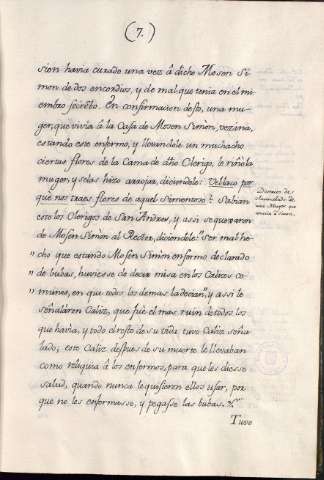 (7.)
sion havia curado una vez â dicho Mosen Si
mon de dos encordios, y de mal que tenia en el mi
embro secreto. En confirmacion desto, una mu
ger, que vivia â la Casa de Mosen Simon, vezina,
estando este enfermo, y llevandole un muchacho
ciertas flores de la Cama de dho Clerigo, le riñe la
muger, y se las hizo arrojar, diciendole: Vellaco, por
què nos traes flores de aquel Sarnenoso? Sabian
esto los Clerigos de San Andres, y assi se quexaron
de Mosen Simon al Rector, diciendole: Ser mal he
" cho que estando Mosen Simon enfermo declarado
" de bubas, huviesse de decir misa en los Calizes co
" munes, en que todos los demas la dezian; y assi le
señalaron Caliz, que fuè el mas ruin de todos los
que havia, y todo el resto de su vida tuvo Caliz seña
lado; este Caliz despues de su muerte le llevaban
como reliquia â los enfermos, para que les diesse
salud, quando nunca le quisieron ellos usar, por
que no les enfermasse, y pegasse las bubas.
Tuvo
de una Muger que